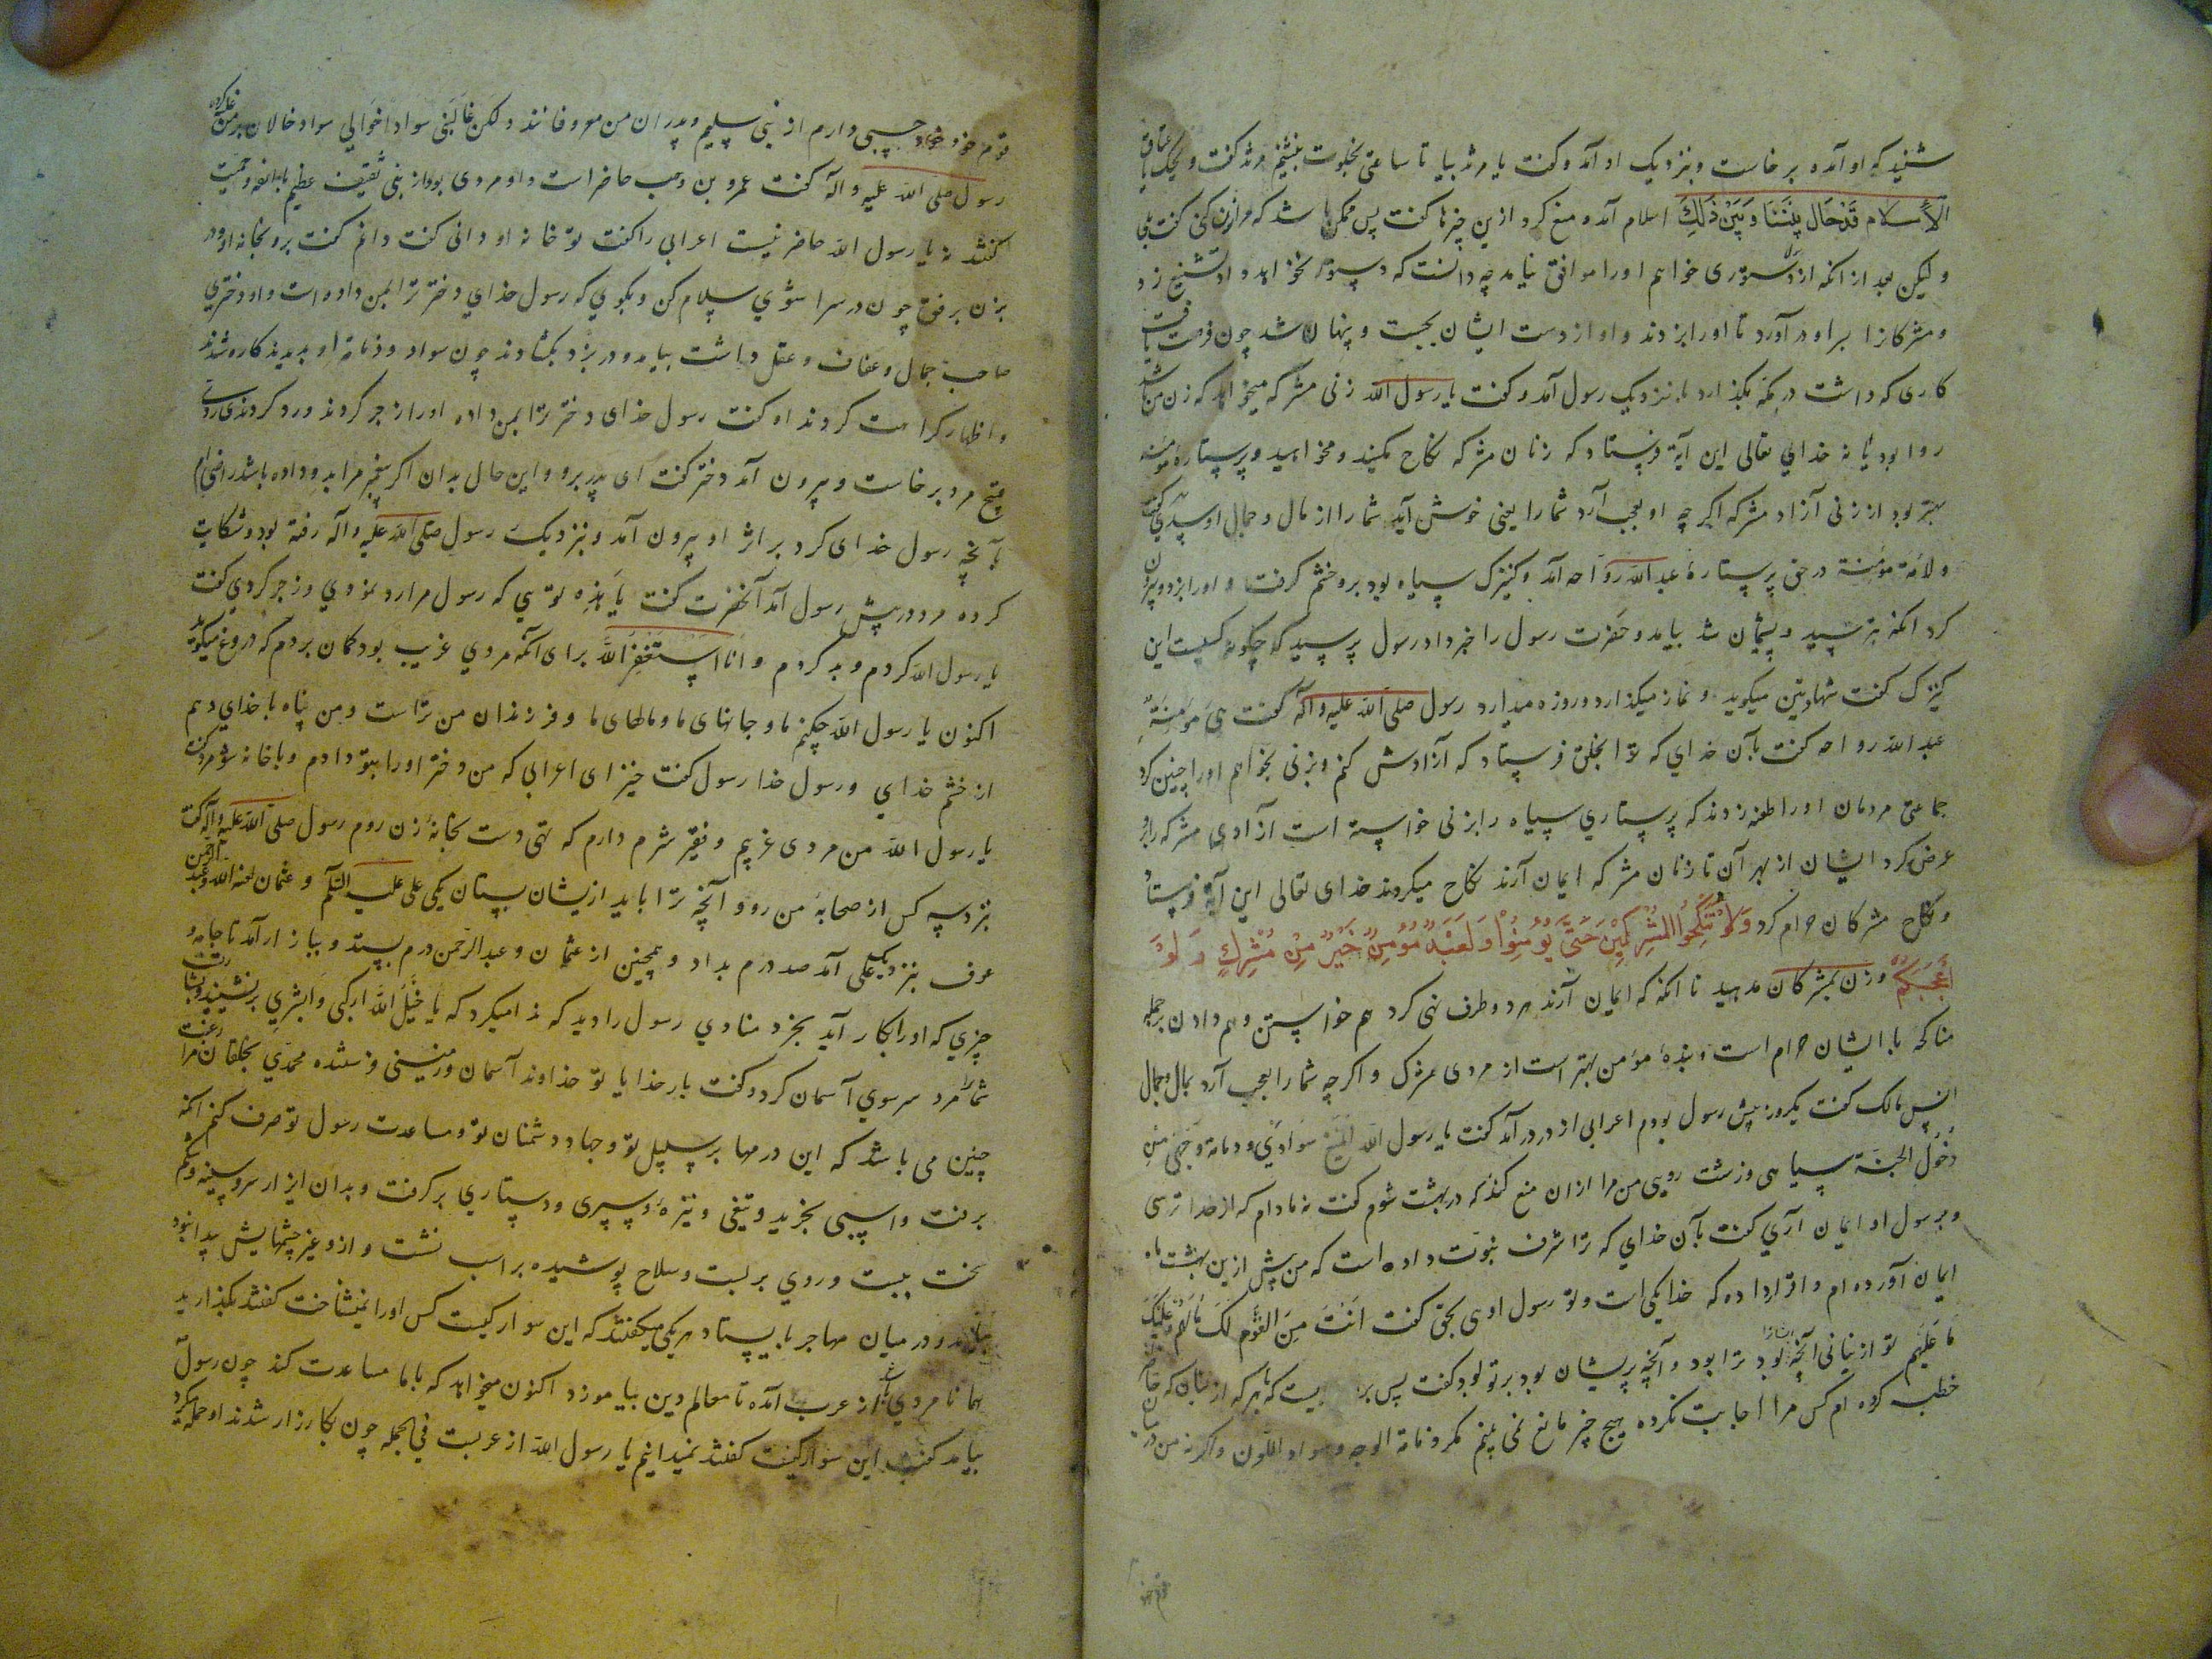 شنید که او آمده برخاست و بنزدیک او آمد و کفت یا مرثد بیا تا ساعتی بخلوت بنشینم مرثد کفت ویحک یا عناق
الاسلام قَدْ حَالَ بَیْنَنَا وَبَیْنَ ذٰلِكَ اسلام آمد و منع کرد ازین چیزها کفت پس ممکن باشد که مرا بزن کنی کفت بلی
و لیکن بعد از انکه از دستوری خواهم اورا موافق نیامد چه دانست که دستور نخواهد داد تشنیع زد
و مشرکانرا براو در آورد تا اورا بزدند واو از دست ایشان بجست و پنهان شد چون فرصت یافت
کاری که داشت در مکه بگذارد با نزدیک رسول آمد و کفت یا رسول الله زنی مشرکه میخواهد که زن من باشد
روا بود یا نه خدای تعالی این آیة فرستاد که زنان مشرکه نکاح مکنید و مخواهید و پرستاره مؤمنه
بهتر بود از زنی آزاد مشرکه اکرچه او بعجب آرد شما را یعنی خوش آید شما را از مال و جمال او سدی کفت
ولأمة مؤمنة در حق پرستارهٔ عبدالله رواحه آمد و کنیزک سیاه بود برو خشم کرفت و اورا بزد و بیرون
کرد انکه بترسید و پشیمان شد بیامد و حضرت رسول را خبر داد رسول پرسید که چکونه کسیست این
کنیزک کفت شهادتین میکوید و نماز میکذارد و روزه میدارد رسول صلی الله علیه وآله کفت هی مؤمنة
عبدالله رواحه کفت بآن خدای که ترا بخلق فرستاد که آزادش کنم و بزنی بخواهم اورا چنین کرد
جماعتی مردمان اورا طعنه زدند که پرستاری سیاه را بزنی خواسته است آزادی مشرکه را برو
عرض کرد ایشان از بهر آن تا زنان مشرکه ایمان آرند نکاح میکردند خدای تعالی این آیة فرستاد
و نکاح مشرکان حرام کرد وَلَا تُنْكِحُوا الْمُشْرِكِينَ حَتَّى يُؤْمِنُوا وَلَعَبْدٌ مُؤْمِنٌ خَيْرٌ مِنْ مُشْرِكٍ وَلَوْ
أَعْجَبَكُمْ و زن بمشرکان مدهید تا انکه که ایمان آرند هردو طرف نهی کرد هم خواستن و هم دادن جمله
مناکحه با ایشان حرام است و بندهٔ مؤمن بهتر است از مردی مشرک و اکرچه شما را بعجب آرد بمال و جمال
انس مالک کفت یکروز پیش رسول بودم اعرابی از در در آمد کفت یا رسول الله ایمنع سوادی و دمامة وجهی من
دخول الجنة سیاهی و زشت رویی من مرا ازان منع کند که در بهشت شوم کفت نه مادام که از خدا ترسی
و برسول او ایمان آری کفت بآن خدای که ترا شرف نبوت داده است که من پیش ازین بهشت ماه
ایمان آورده ام و اقرار داده که خدا یکی است و تو رسول اوی بحق کفت انت من القوم لک مالهم و علیک
ما علیهم تو از نیانی آنچه ایشانرا بود ترا بود و آنچه بریشان بود بر تو بود کفت پس که بهر که از نیان که حاضرند
خطبه کرده ام کس مرا اجابت نکرده هیچ چیز مانع نمی بینم مکر دمامة الوجه و سواد اللون و اکرنه من در میان
قوم خود حسبی دارم از بنی سلیم و پدران من معروفانند ولکن غلبنی سواد اخوالی سواد خالان بر من غلبه کرده
رسول صلی الله علیه وآله کفت عمرو بن وهب حاضر است و او مردی بود از بنی ثقیف عظیم با انفه و حمیت
کفتند نه یا رسول الله حاضر نیست اعرابی را کفت تو خانه او دانی کفت دانم کفت برو بخانه او و در
بزن برفق چون در سرا شوی سلام کن و بکوی که رسول خدای دختر ترا بمن داده است و او دختری
صاحب جمال و عفاف و عقل داشت بیامد و در بزد بکشادند چون سواد و دمامة او بدیدند کاره شدند
و اظهار کراهت کردند او کفت رسول خدای دختر ترا بمن داده اورا زجر کردند و رد کردند ردی
قبیح مرد برخاست و بیرون آمد دختر کفت ای پدر برو و این حال بدان اکر پیغمبر مرا بدو داده باشد راضی ام
بآنچه رسول خدای کرد بر اثر او بیرون آمد و بنزدیک رسول صلی الله علیه وآله رفته بود و شکایت
کرده مرد در پیش رسول آمد آنحضرت کفت یا هذا تو یی که رسول مرا رد نمودی و زجر کردی کفت
یا رسول الله کردم و بد کردم و انا استغفر الله برای آنکه مردی غریب بود کمان بردم که دروغ میکوید
اکنون یا رسول الله حکم ما و جانهای ما و مالهای ما و فرزندان من تراست و من پناه با خدای دهم
از خشم خدای و رسول خدا رسول کفت خیز ای اعرابی که من دختر اورا بتو دادم و با خانه شو مرد کفت
یا رسول الله من مردی غریبم و فقیر شرم دارم که تهی دست بخانهٔ زن روم رسول صلی الله علیه وآله کفت
بنزد سه کس از صحابهٔ من رو و آنچه ترا باید ازیشان بستان یکی علی علیه السلام و عثمان و عبدالرحمن
عوف بنزدیک علی آمد صد درم بداد و همچنین از عثمان و عبدالرحمن درم بستد و ببازار آمد تا جامه و
چیزی که اورا بکار آید بخرد منادی رسول را دید که ندا میکرد که یا خیل الله ارکبی و ابشری برنشینید و بشارت
شما را مرد سر سوی آسمان کرد و کفت بار خدایا تو خداوند آسمان و زمینی و فرستنده محمدی بخلقان مرا رغبت
چنین می باشد که این درمها بر سبیل تو و جهاد دشمنان تو و مساعدت رسول تو صرف کنم انکه
برفت و اسبی بخرید و تیغی و نیزهٔ و سپری و دستاری برکرفت و بدان ایزار سر و سینه و شکم
سخت ببست و روی بربست و سلاح پوشیده بر اسب نشست و ازو غیر چشمهایش پیدا نبود
بیامد و در میان مهاجر بایستاد هر یکی میکفتند که این سوار کیست کس اورا نمیشناخت کفتند بگذارید
همانا مردی از عرب آمده تا معالم دین بیاموزد اکنون میخواهد که با ما مساعدت کند چون رسول
بیامد کفت این سوار کیست کفتند نمیدانیم یا رسول الله از عربست فی الجمله چون بکارزار شدند او حمله میکرد